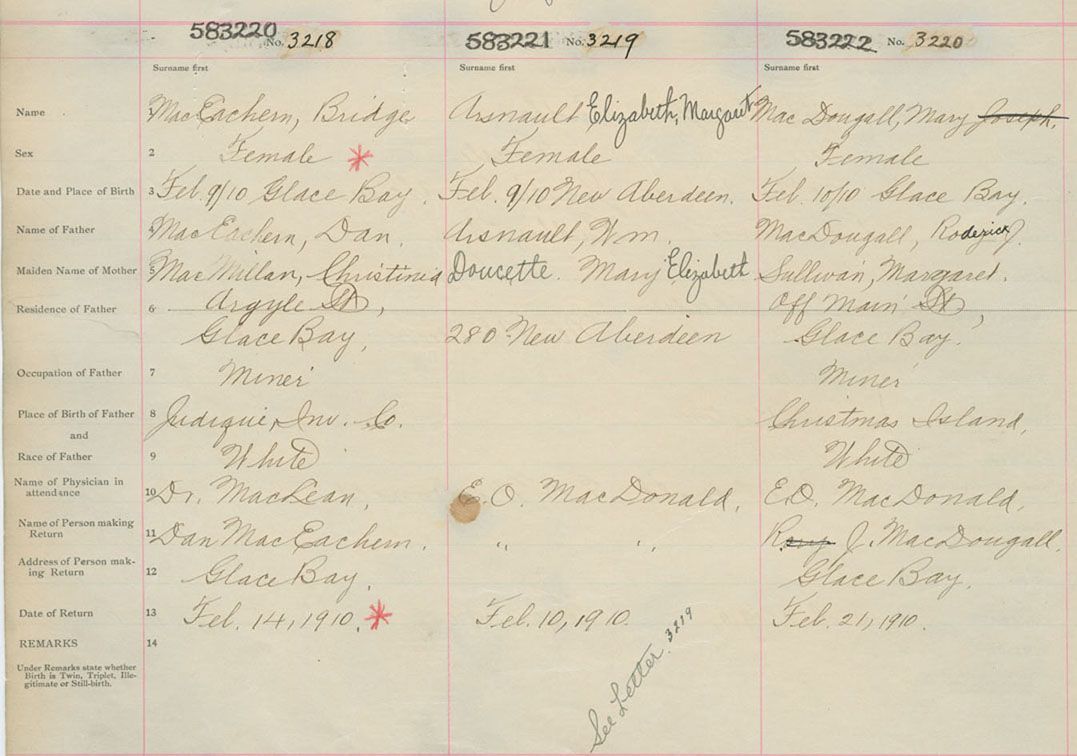 583220 No. 3218 583221 No. 3219 583222 No. 3220
Surname first Surname first Surname first
Name 1 MacEachern, Bridge Arsnault Elizabeth, Margaret MacDougall, Mary Joseph.
Sex 2 Female * Female Female
Date and Place of Birth 3 Feb. 9/10 Glace Bay. Feb. 9/10 New Aberdeen. Feb. 10/10 Glace Bay.
Name of Father 4 MacEachern, Dan. Arsnault, Wm. MacDougall, Roderick J.
Maiden Name of Mother 5 MacMillan, Christina Doucette. Mary Elizabeth Sullivan, Margaret.
Argyle St, Off Main St,
Residence of Father 6
Glace Bay, 280 New Aberdeen Glace Bay.
Occupation of Father 7 Miner Miner
Place of Birth of Father 8 Judique, Inv. Co. Christmas Island,
and
Race of Father 9 White White
Name of Physician in
attendance 10 Dr. MacLean, E.O. MacDonald, E.O. MacDonald,
Name of Person making
Return 11 Dan MacEachern. " " J. MacDougall.
Address of Person mak-
ing Return 12 Glace Bay. Glace Bay.
Date of Return 13 Feb. 14, 1910. * Feb. 10, 1910. Feb. 21, 1910.
REMARKS 14
Under Remarks state whether
Birth is Twin, Triplet, Ille-
gitimate or Still-birth.
See Letter 3219